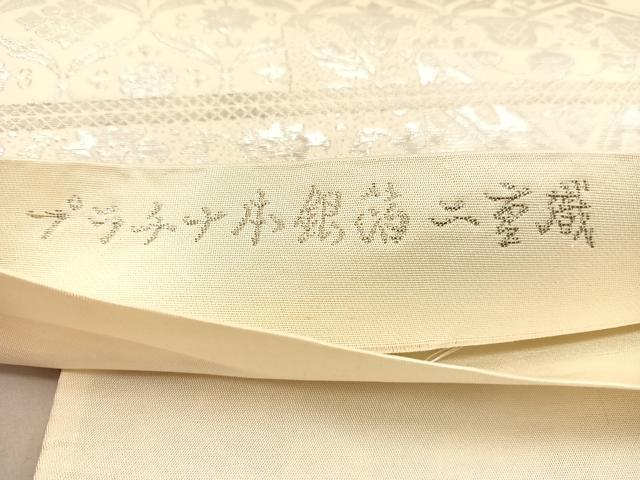 プラチナ本銀箔二重織